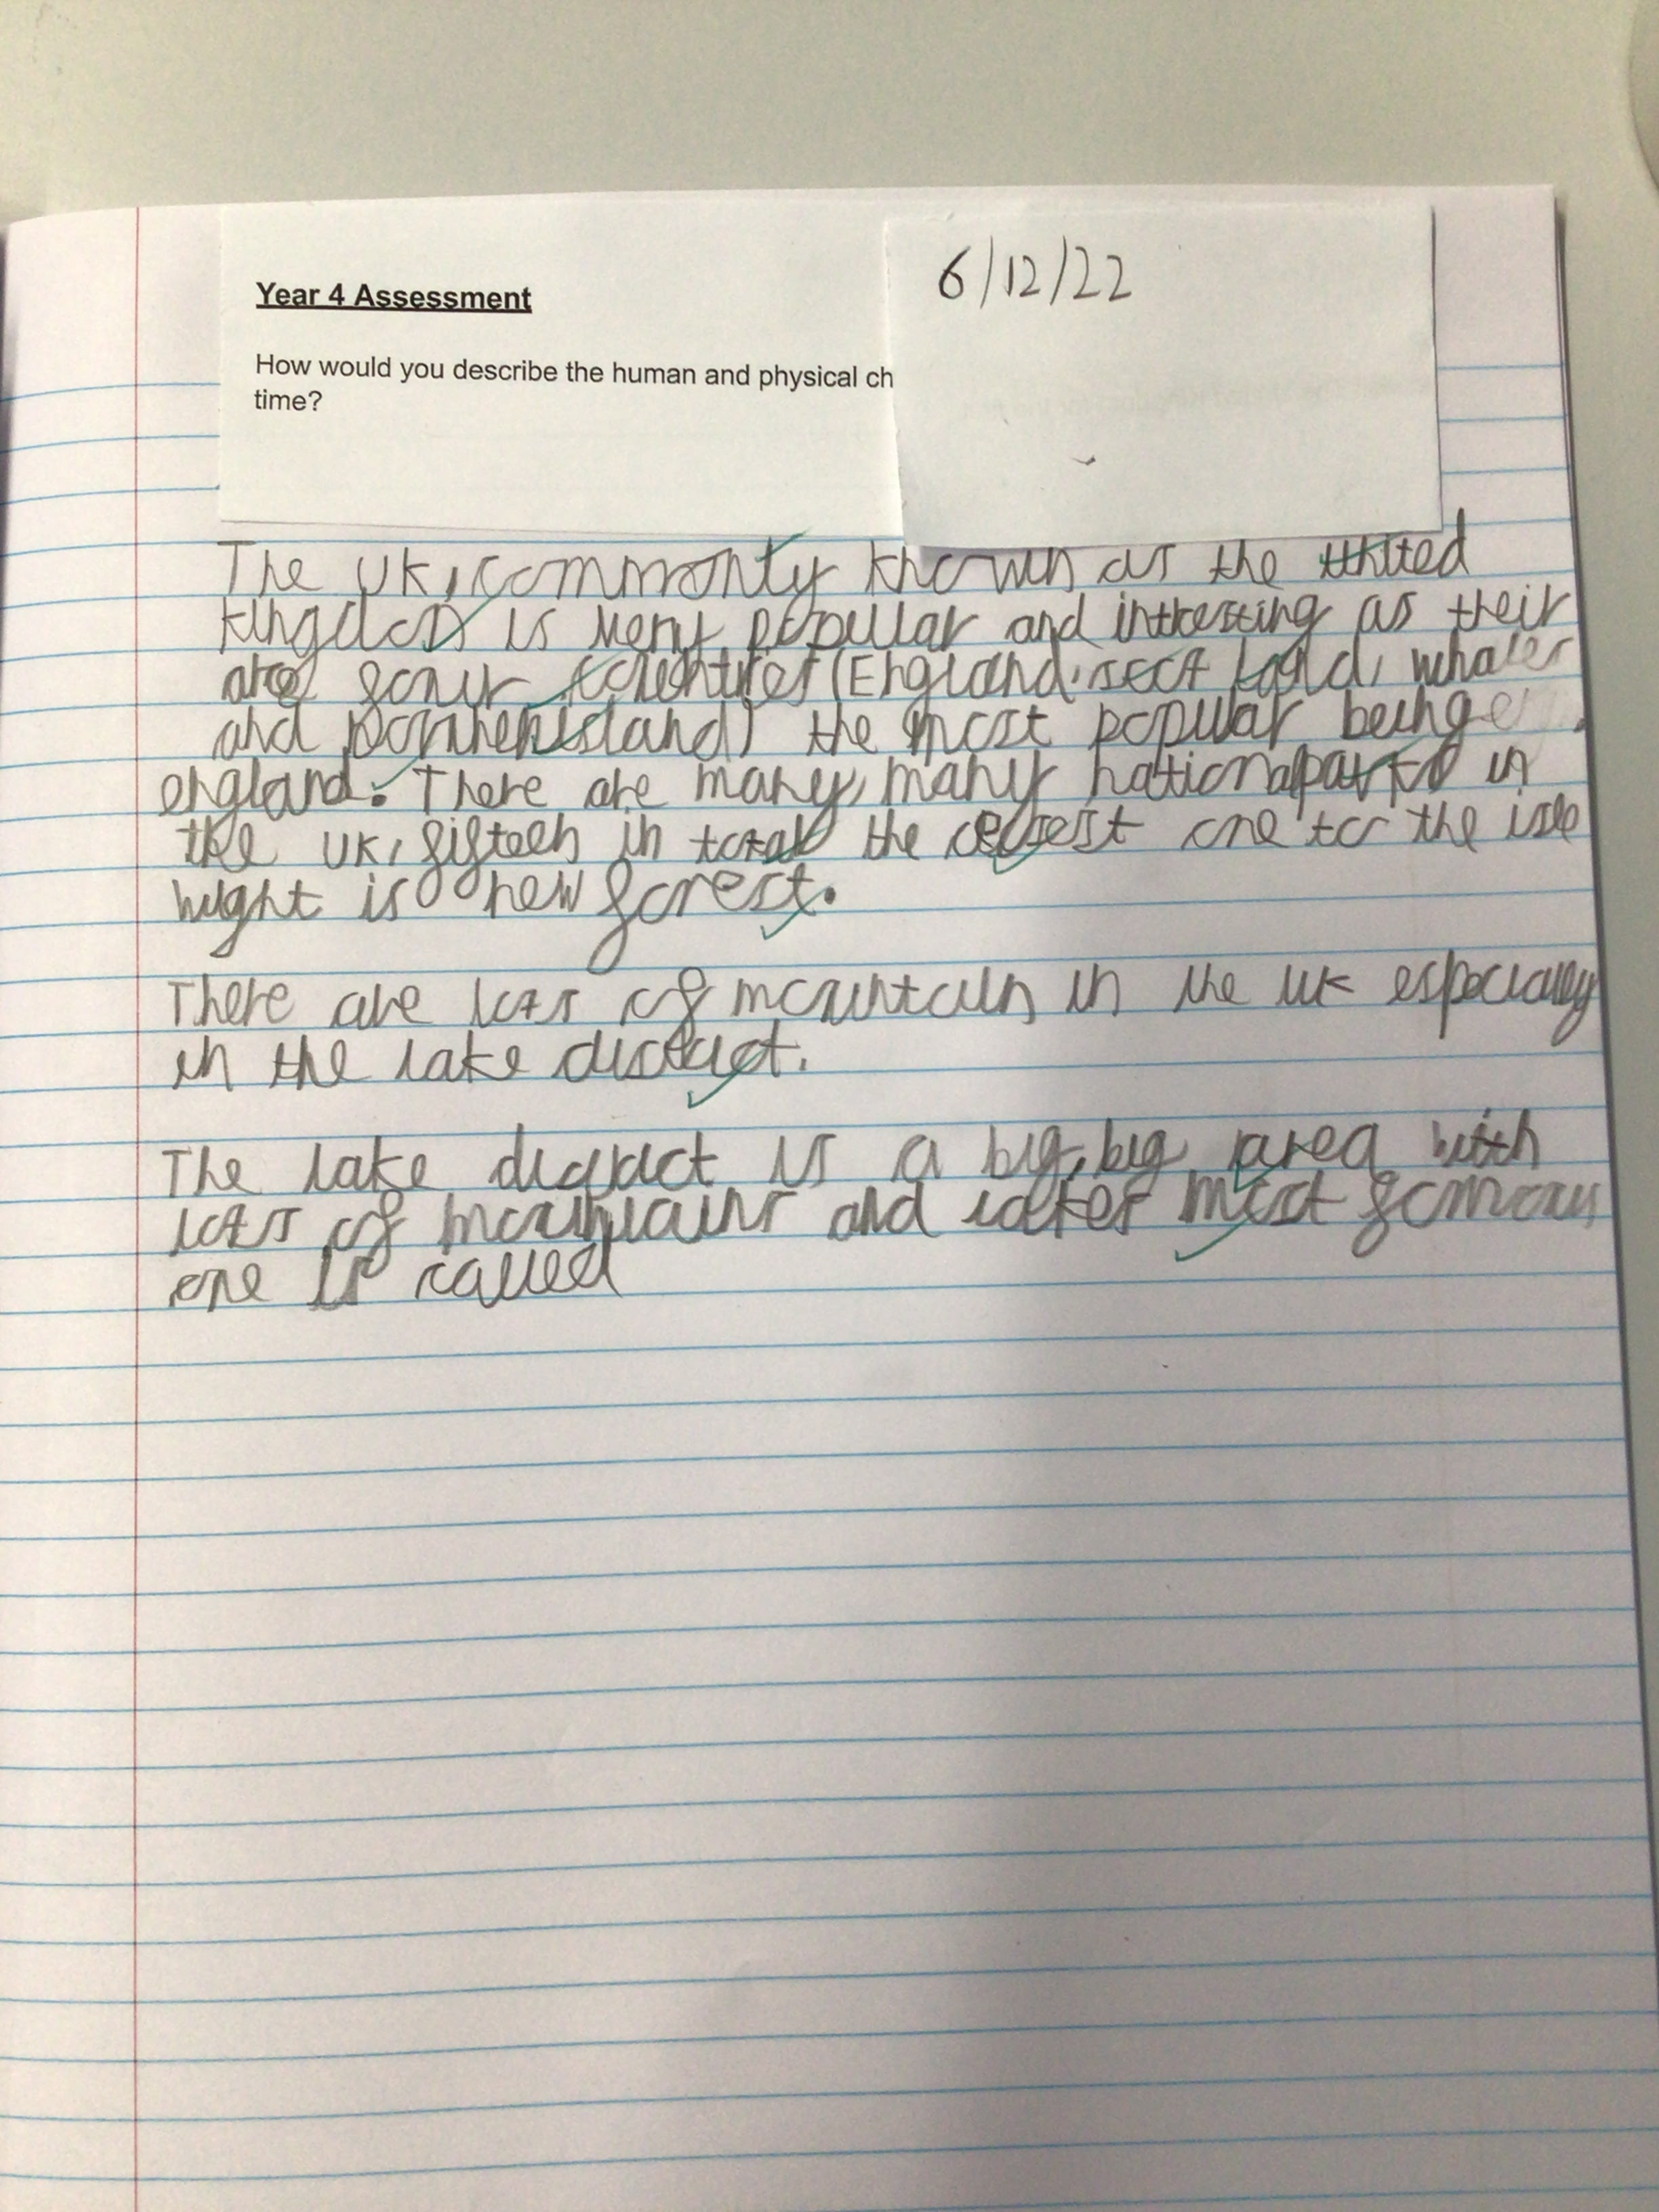 Year 4 Assessment
6/12/22
How would you describe the human and physical ch
time?
The UK, commonly known as the united
kingdom is very popullar and intresting as their
are four countries (England, scot land, whales
and northen island) the most popular being e
england. There are many, many national parks in
the UK, fifteen in total the closest one to the isle
wight is new forest.
There are lots of mountain in the uk especially
in the lake district.
The lake district is a big, big area with
lots of mountains and lakes most famous
one is called